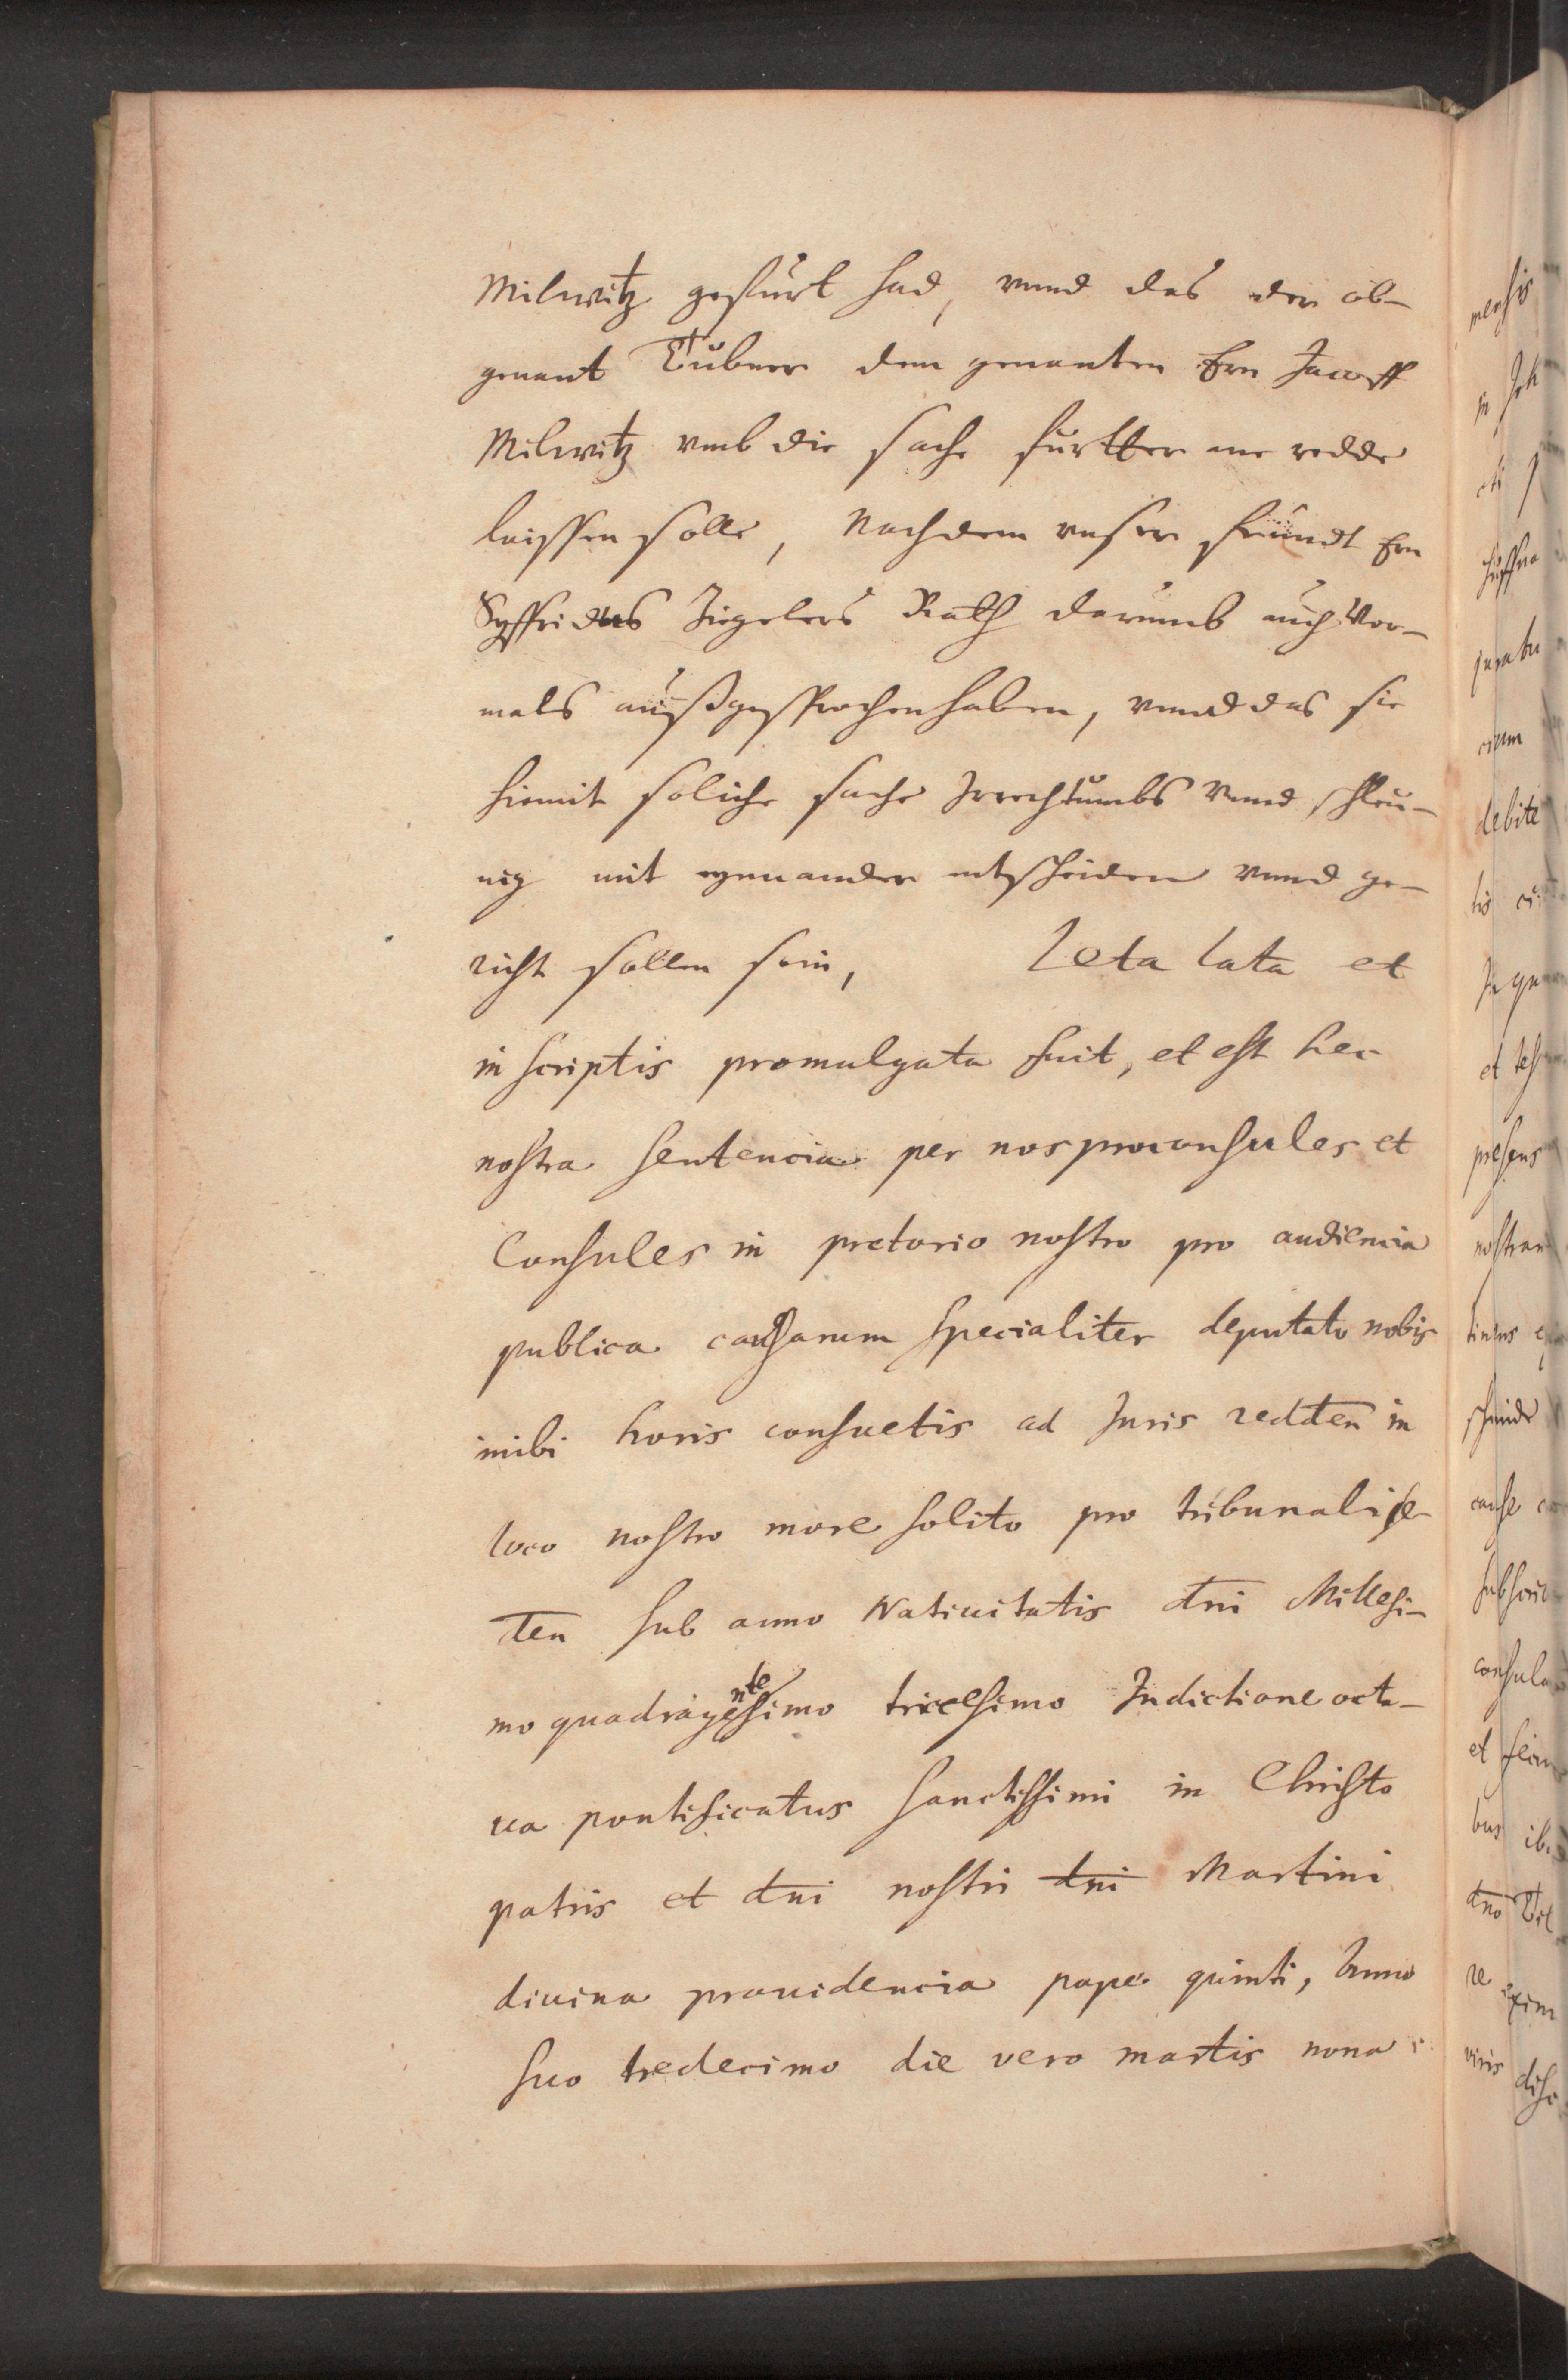 Milwitz gefurt had, vnnd das der ob-
genant Tubner dem genanten Ern Jacoff
Milwitz vmb die sache furtter ane redde
laissen solle, Nachdem vnser frundt Ern
Syffridus Ziegelers Rath darumb auch Vor-
mals außgesprochen haben, vnnd das sie
hiemit soliche sache Irrechtumbs vnnd
nig mit eynnander entscheiden vnnd ge-
richt sollen sein, Leta lata et
in scriptis promulgata fuit, et est hec
nostra sentencia per nos proconsules et
Consules in pretorio nostro pro audiencia
publica causarum specialiter deputato nobis
inibi horis consuetis ad Juris redden̄ in
loco nostro more solito pro tribunali se-
den̄ sub anno Natiuitatis dn̄i Millesi-
mo quadragentesimo tricesimo Indictione octa-
ua pontificatus sanctissimi in Christo
patris et dn̄i nostri dn̄i Martini
diuina prouidencia pape quinti, Anno
suo tredecimo die vero martis nona
mensis
debite
et
presens
consula
dno
viris